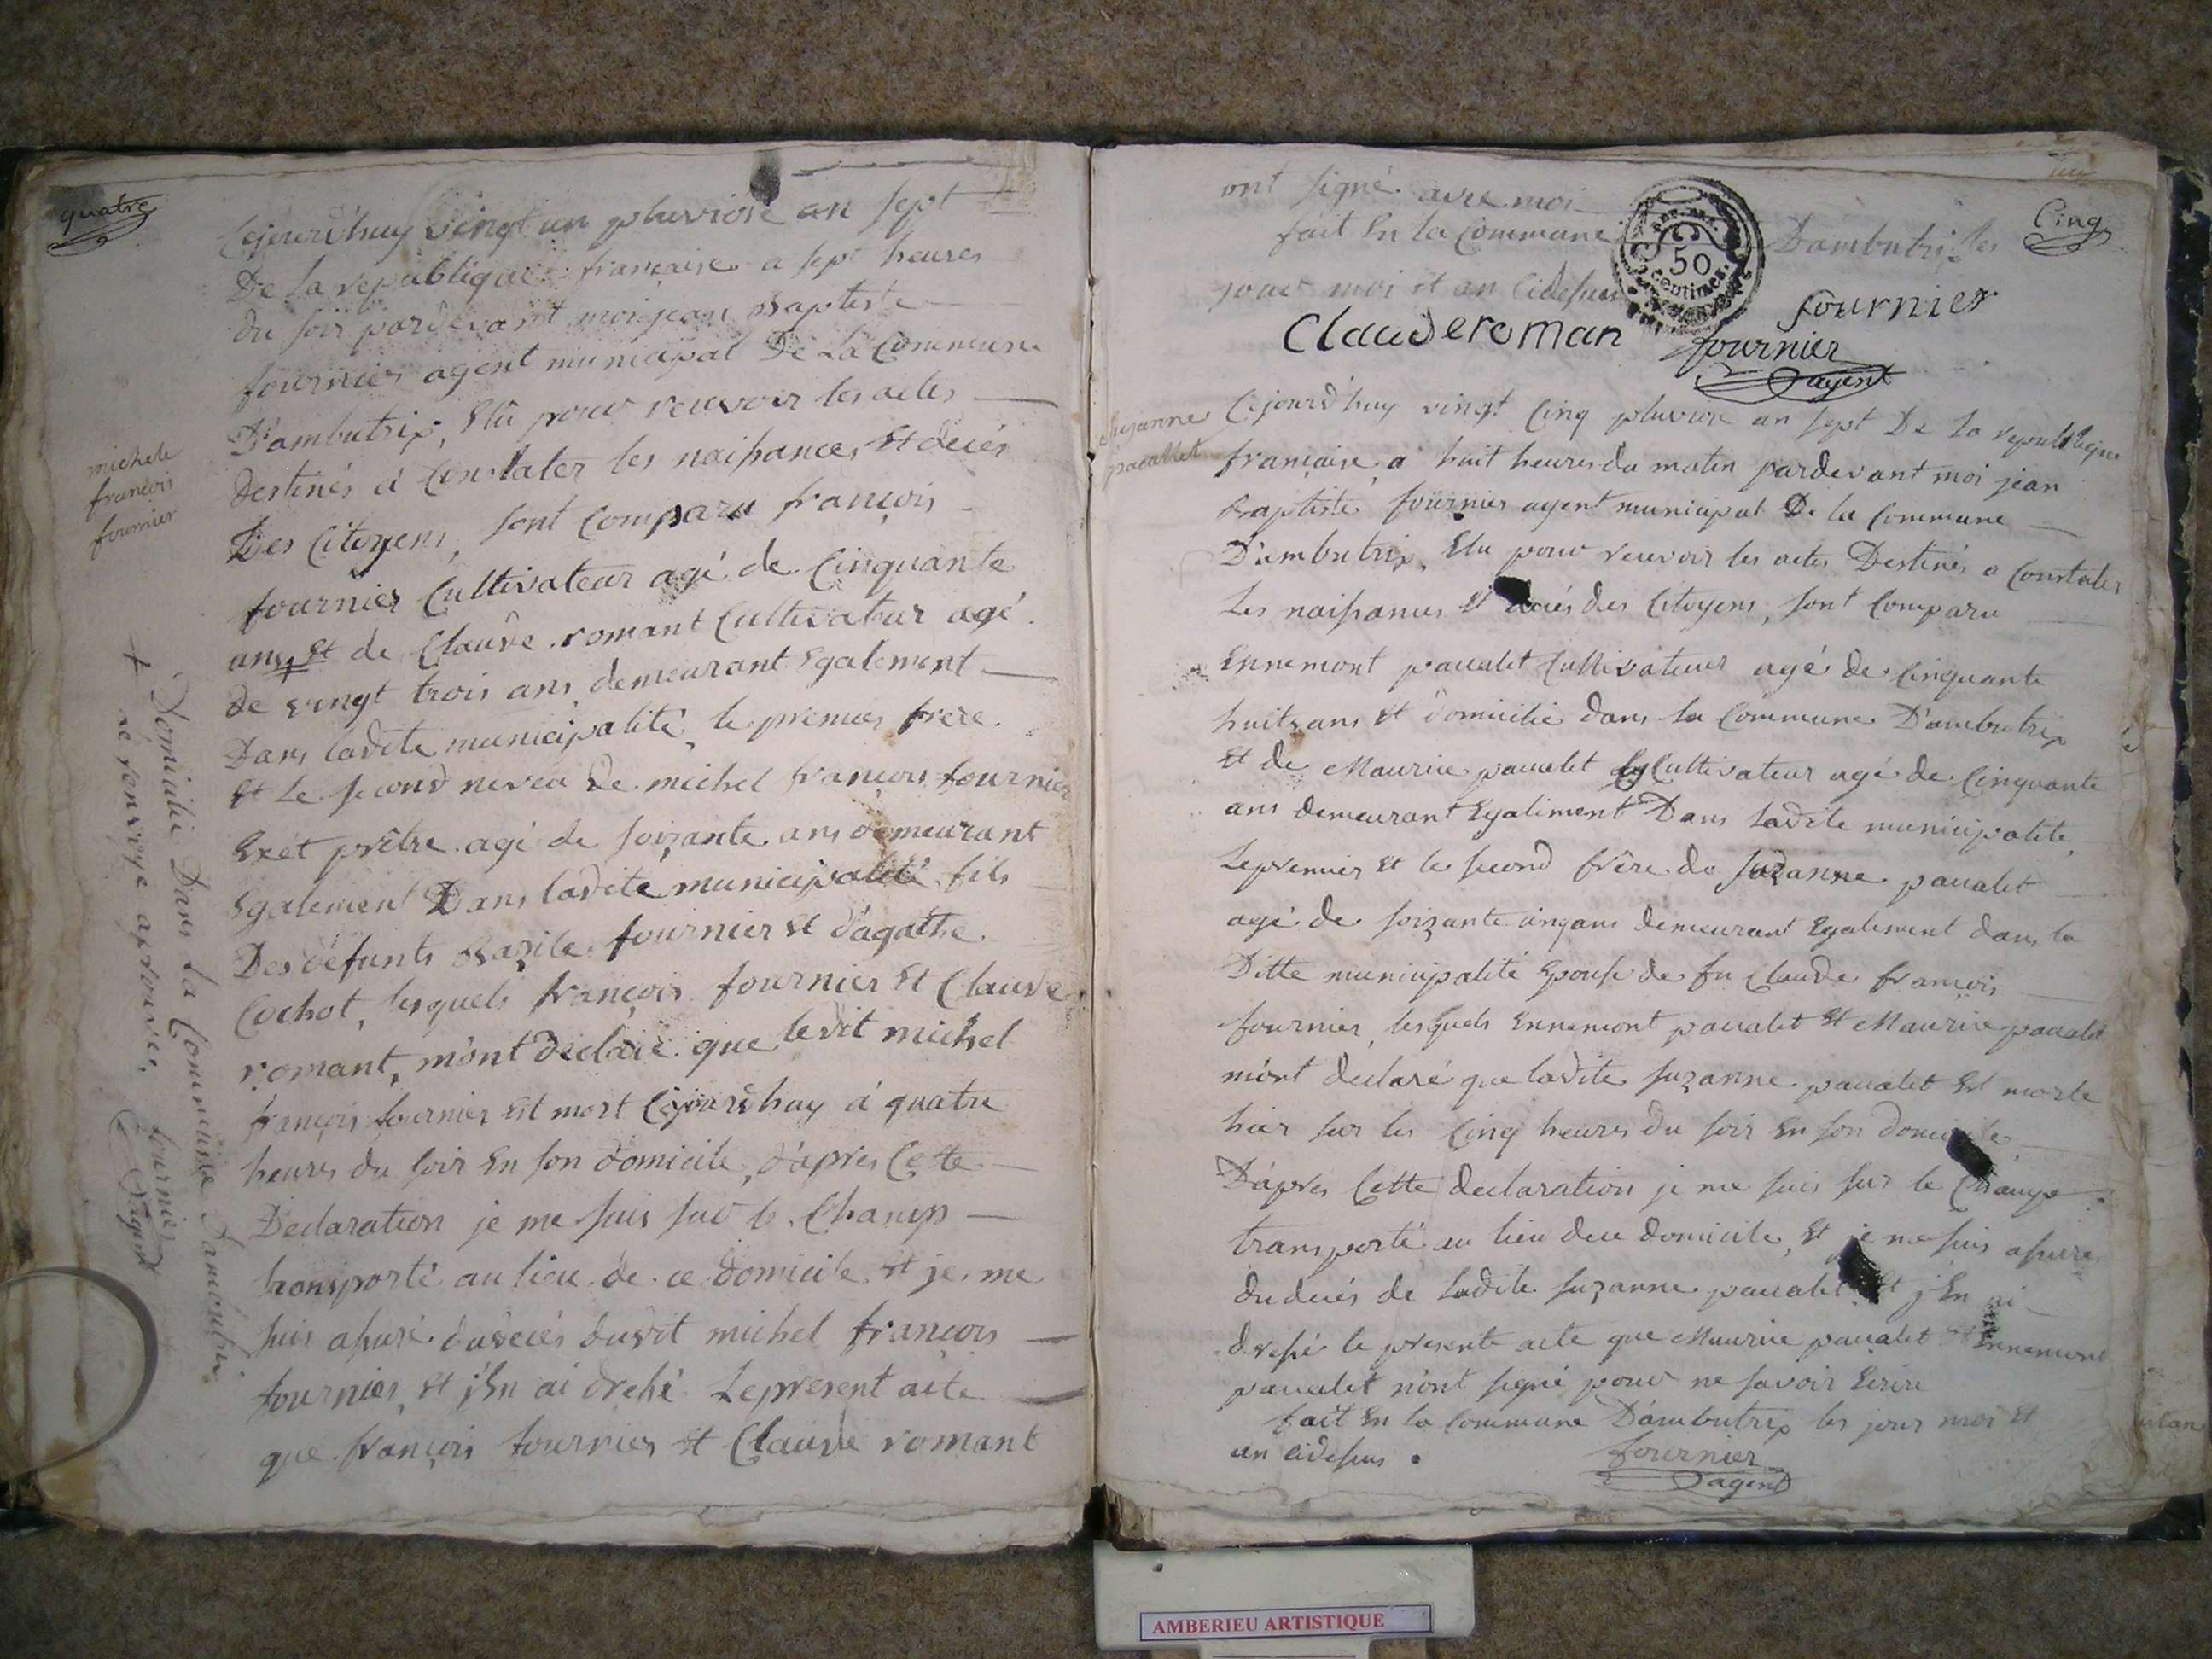 quatre
Cejourd'huy vingt un pluviose an sept
De la republique française a sept heures
du soir pardevant moi jean Baptiste
fournier agent municipal De La Commune
D'ambutrix, Elû pour recevoir les actes
destinés á Constater les naissances Et decés
Des Citoyens, sont Comparu françois
fournier Cultivateur agé de Cinquante
ans, Et de Claude romant Cultivateur agé
de vingt trois ans demeurant Egalement
Dans ladite municipalité, le premier frere
Et Le second neveu de michel françois fournier
Exèt prêtre agé de soizante ans demeurant
Egalement Dans ladite municipalité fils
Des défunts Bazile fournier Et d'agathe
Cochot, lesquels françois fournier Et Claude
romant, m'ont declaré que ledit michel
françois fournier Est mort Cejourdhuy á quatre
heures du soir En son domicile, d'apres Cette
Declaration je me suis sur le Champs
transporté au lieu de ce domicile Et je me
suis assuré du decés dudit michel françois
fournier, Et j'En ai dressé Le present acte
que françois fournier Et Claude romant
michele
françois
fournier
+ Domicilié Dans La Commune d'ambutrix
le renvoye aprouvée,
fournier
Agent
Cinq
ont signé avec moi
fait En la Commune D'ambutrix les
jour moi Et an cidessus
50
Centimes
Clauderoman
fournier
fournier
agent
Suzanne
pacallet
Cejourd'huy vingt Cinq pluviose an sept De La republique
française, a huit heures du matin pardevant moi jean
Baptiste fournier agent municipal De la Commune
D'ambutrix, Elu pour recevoir les actes Destinés a Constater
Les naissances Et decés des Citoyens, sont Comparu
Ennemont pacalet Cultivateur agé de Cinquante
huit ans Et domicilié dans la Commune D'ambutrix
Et de Maurice pacalet Cultivateur agé de Cinquante
ans demeurant Egaliment Dans Ladite municipalité,
Le premier Et le second frère de suzanne pacalet
agé de soizante cinq ans demeurant Egalement dans la
Ditte municipalité Epouse de fu Claude françois
fournier, lesquels Ennemont pacalet Et Maurice pacalet
m'ont declaré que ladite suzanne pacalet Est morte
hier sur les Cinq heures du soir En son domicile
D'aprés Cette declaration je me suis sur le Champs
transporté au lieu dece domicile, Et je me suis assuré
du decés de Ladite suzanne pacalet Et j'En ai
dressé le presente acte que Maurice pacalet Et Ennemont
pacalet n'ont signé pour ne savoir Ecrire
fait En la Commune D'ambutrix les jour moi Et
an cidessus.
fournier
agent
AMBERIEU ARTISTIQUE